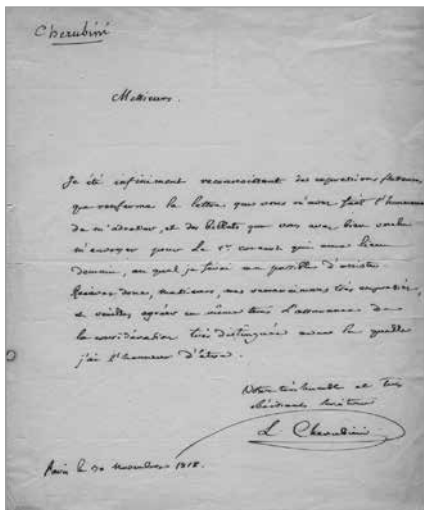 Cherubini
Messieurs.
Je été infiniment reconnaissant des expressions flatteuses
que renferme la lettre que vous m'avez fait l'honneur
de m'adresser, et des billets que vous avez bien voulu
m'envoyer pour le 1er concert qui aura lieu
demain, au quel je ferai mon possible d'assister.
Recevez donc, messieurs, mes remercimens très empressés,
et veuillez agréer en même tems l'assurance de
la considération très distinguée avec la quelle
j'ai l'honneur d'être.
Votre très humble et très
obéissant serviteur
L. Cherubini
Paris le 30 novembre